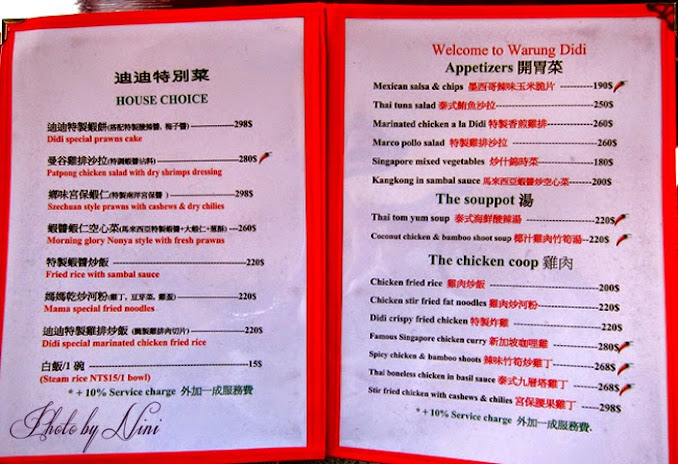 迪迪特別菜
HOUSE CHOICE
迪迪特製蝦餅(搭配特製酸辣醬, 梅子醬) 298$
Didi special prawns cake
曼谷雞排沙拉(特調蝦醬沾料) 280$
Patpong chicken salad with dry shrimps dressing
鄉味宮保蝦仁(特製南洋宮保醬) 298$
Szechuan style prawns with cashews & dry chilies
蝦醬蝦仁空心菜(馬來西亞特製蝦醬+大蝦仁+蔥酥) ---260$
Morning glory Nonya style with fresh prawns
特製蝦醬炒飯 220$
Fried rice with sambal sauce
媽媽乾炒河粉(雞丁, 豆芽菜, 雞蛋) 220$
Mama special fried noodles
迪迪特製雞排炒飯 220$
Didi special marinated chicken fried rice
白飯/1 碗 15$
(Steam rice NT$15/1 bowl)
* + 10% Service charge 外加一成服務費
Photo by Nini
Welcome to Warung Didi
Appetizers 開胃菜
Mexican salsa & chips 墨西哥辣味玉米脆片 190$
Thai tuna salad 泰式鮪魚沙拉 250$
Marinated chicken a la Didi 特製香煎雞排 260$
Marco pollo salad 特製雞排沙拉 260$
Singapore mixed vegetables 炒什錦時菜 180$
Kangkong in sambal sauce 馬來西亞蝦醬炒空心菜 200$
The souppot 湯
Thai tom yum soup 泰式海鮮酸辣湯 220$
Coconut chicken & bamboo shoot soup 椰汁雞肉竹筍湯 --220$
The chicken coop 雞肉
Chicken fried rice 雞肉炒飯 200$
Chicken stir fried fat noodles 雞肉炒河粉 220$
Didi crispy fried chicken 特製炸雞 220$
Famous Singapore chicken curry 新加坡咖哩雞 280$
Spicy chicken & bamboo shoots 辣味竹筍炒雞丁 268$
Thai boneless chicken in basil sauce 泰式九層塔雞丁 268$
Stir fried chicken with cashews & chilies 宮保腰果雞丁 298$
* + 10% Service charge 外加一成服務費.